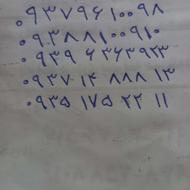 ۰۹۳۷۹۶۱۰۰۹۸
۰۹۳۸۸۱۰۰۹۱۰
۰۹۳۹ ۶ ۳۶۳۹۲۳
۰۹۳۷ ۱۴ ۸۸۸ ۱۳
۰۹۳۵ ۱۷۵ ۲۲ ۱۱